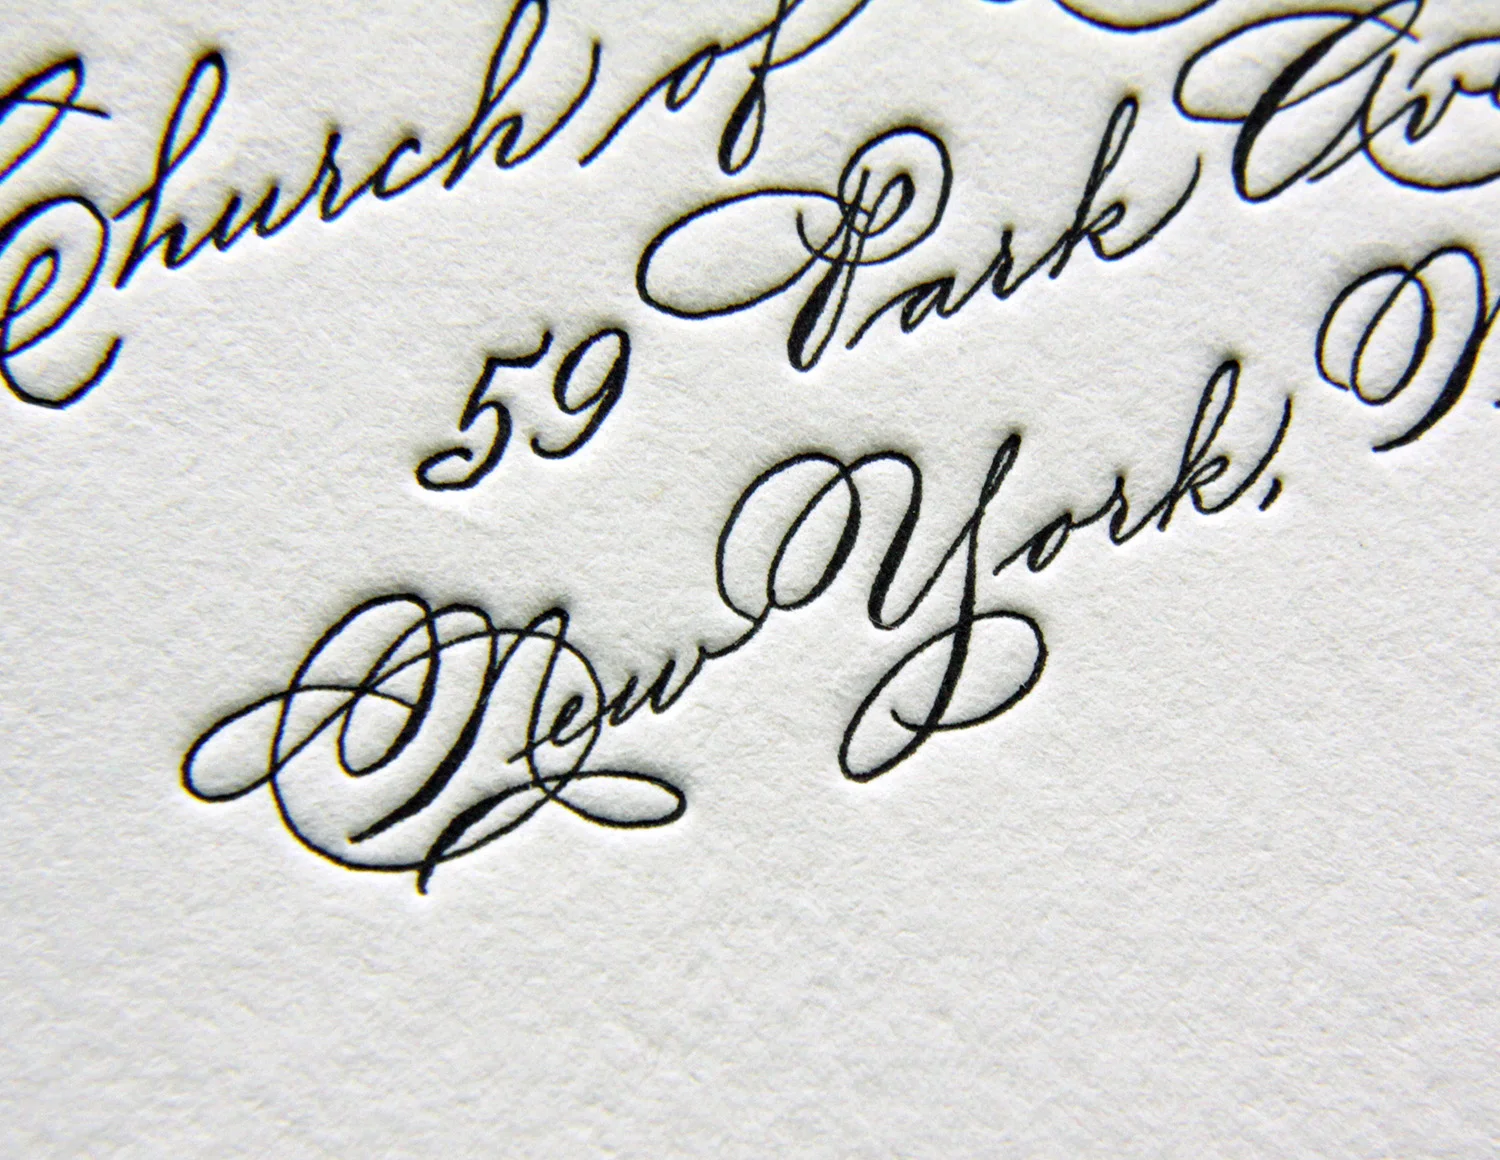 Church of
59 Park Ave
New York, N